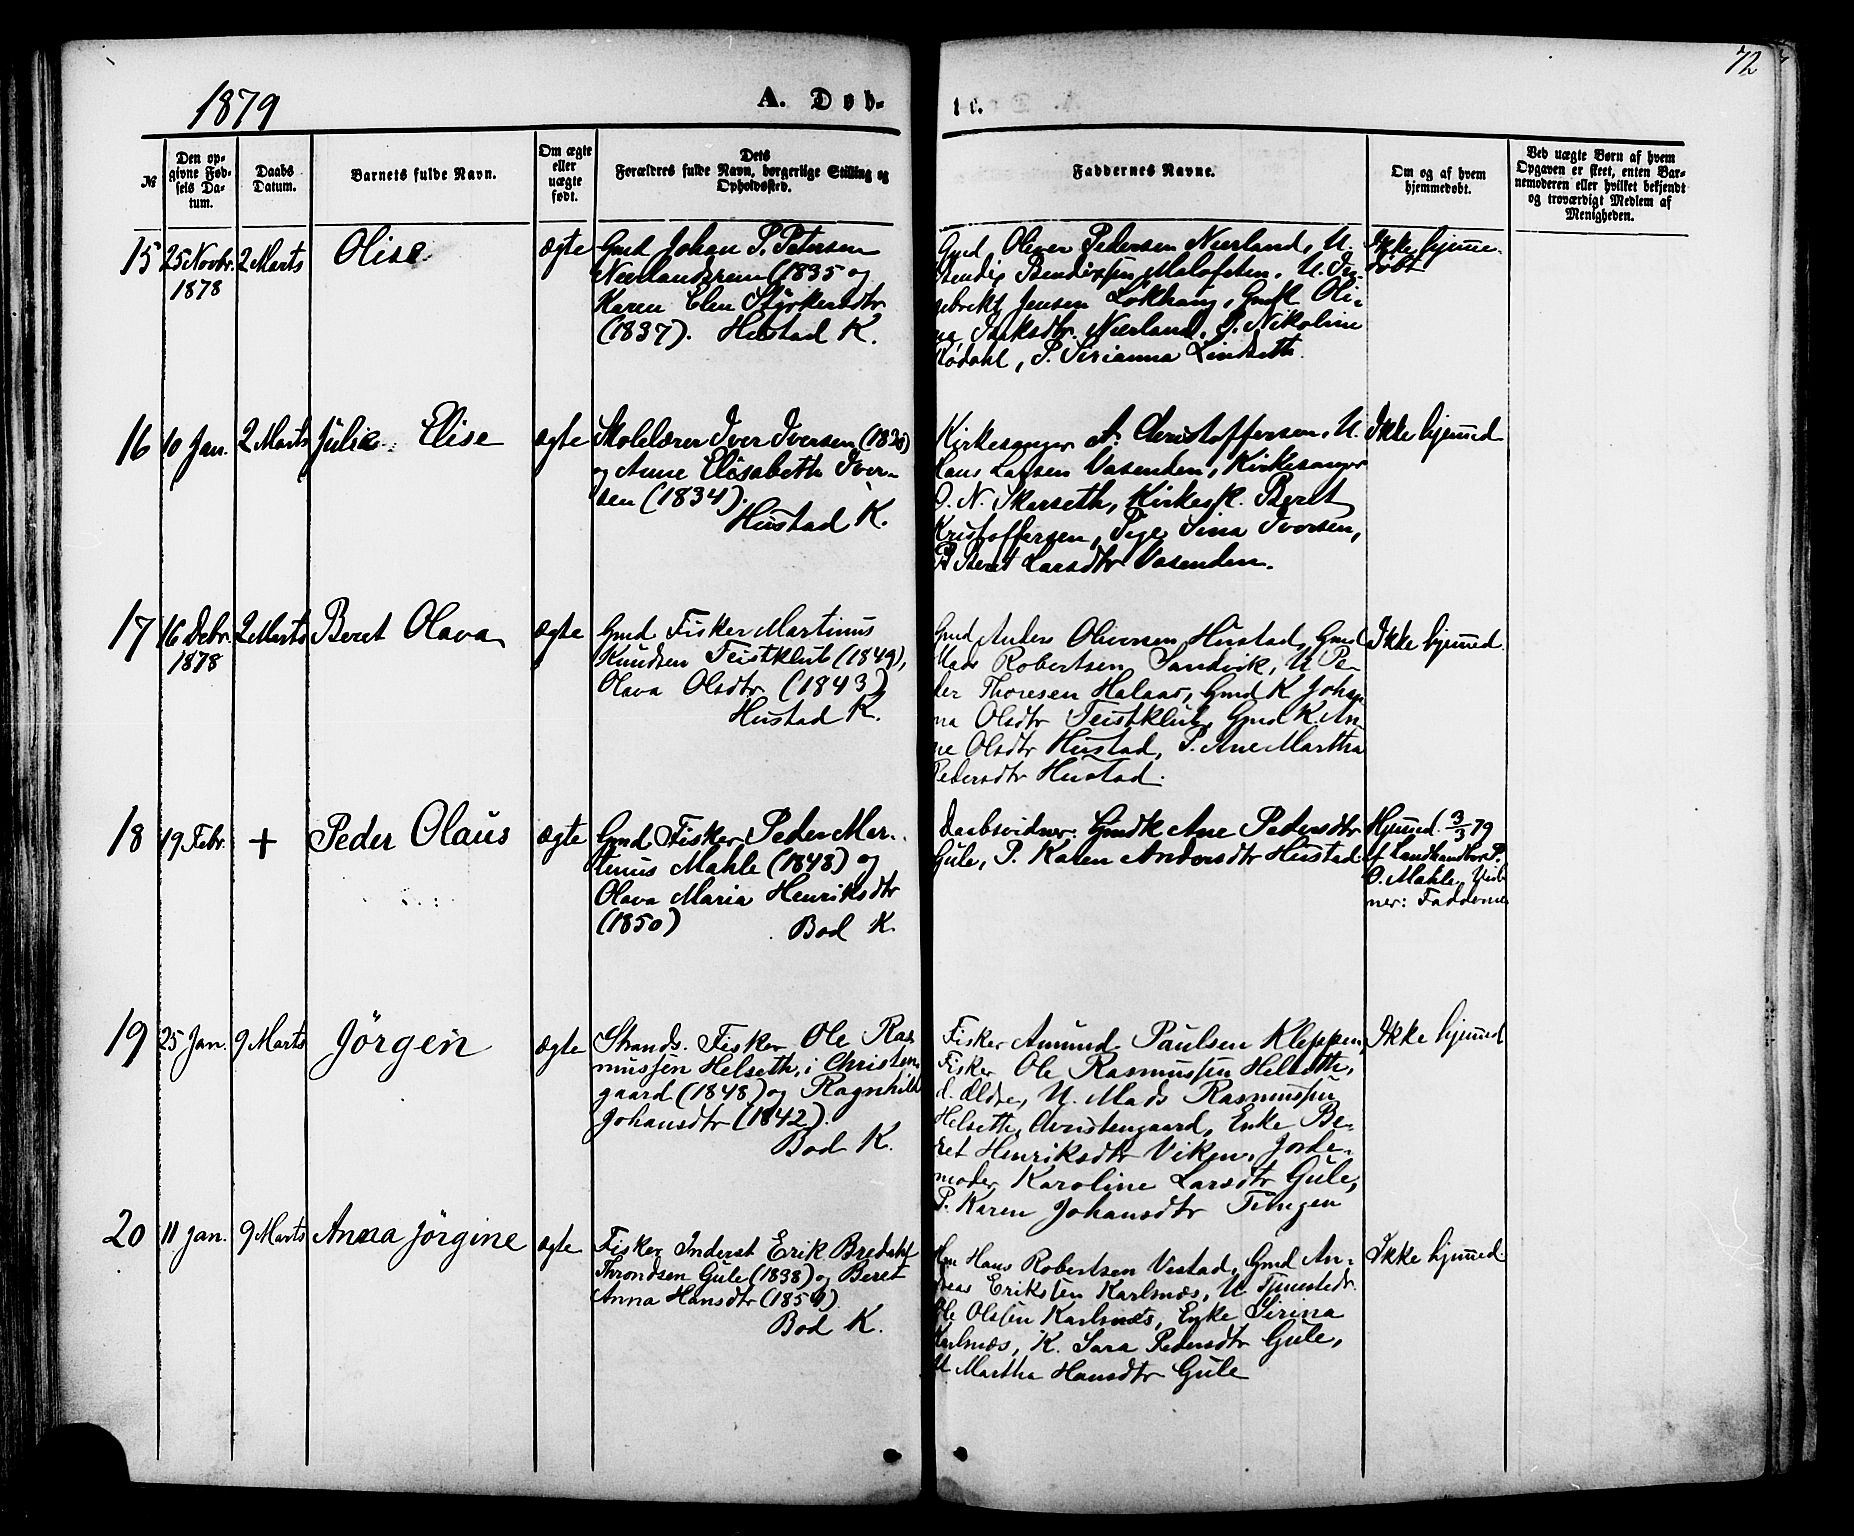 72
1879
A. Døb-
te.
№
Den op-
givne Fød-
sels Da-
tum.
Daabs
Datum.
Barnets fulde Navn.
Om ægte
eller
uægte
født.
Dets
Forældres fulde Navn, borgerlige Stilling og
Opholdssted.
Faddernes Navne.
Om og af hvem
hjemmedøbt.
Ved uægte Børn af hvem
Opgaven er skeet, enten Bar-
nemoderen eller hvilket bekjendt
og troværdigt Medlem af
Menigheden.
15
25 Novbr.
1878
2 Marts
Olise
ægte
Gmd Johan P. Petersen
Nærlandsrem (1835 og
Karen Elen Styrkersdtr
(1837). Hustad K.
Gmd Oliver Pedersen Nærland, U.
Bendix Bendixsen Malefeten, U. In-
gebrikt Jensen Lokhaug, Gmdk Oli-
na Isaksdtr Nærland, P. Nikoline
Rødahl, P. Sirianna Lindseth.
Ikke hjemme-
døbt
16
10 Jan.
2 Marts
Julie Elise
ægte
Skolelærer Iver Iversen
og Anne Elisabeth Iver-
sen (1834).
Hustad K.
Kirkesanger A. Christoffersen, U.
Hans Larsen Vasenden, Kirkesanger
O. N. Skarseth, Kirkesk. Beret
Kristoffersen, Pige Sina Iversen,
P. Beret Larsdtr Vasenden.
Ikke hjemmed
17
16 Debr.
1878
2 Marts
Beret Olava
ægte
Gmd Fisker Martinus
Knudsen Teistklub (1849),
Olava Olsdtr (1843)
Hustad K.
Gmd Anders Oliversen Hustad, Gmd
Mads Robertsen Sandvik, U Pe-
der Thoresen Halaas, Gmd K Johan
na Olsdtr Teistklub, Gmd K. An
ne Olsdtr Hustad, P. Ane Martha
Pedersdtr Hustad.
Ikke hjemmed.
18
19 Febr.
+
Peder Olaus
ægte
Gmd Fisker Peder Mar-
tinus Mahle (1848) og
Olava Maria Henriksdtr
(1850)
Bod K.
Daabsvidner: Gmdk Ane Pedersdtr
Gule, P. Karen Andersdtr Hustad
Hjemmed. 3/3 79
af Landhandler P.
O. Mahle, Vid-
ner: Fadderne
19
25 Jan.
9 Marts
Jörgen
ægte
Strands. Fisker Ole Ras
mussen Helseth, i Christen
gaard (1848) og Ragnhild
Johansdtr (1842).
Bod K.
Fisker Amund Paulsen Kleppen,
Fisker Ole Rasmussen Helseth,
d. Ældre, U. Mads Rasmussen
Helseth, Christengaard, Enke Be-
ret Henriksdtr Viken, Jorde-
moder Karoline Larsdtr Gule,
P. Karen Johansdtr Tingen
Ikke hjemmed
20
11 Jan.
9 Marts
Anna Jörgine
ægte
Fisker Inderst Erik Bredahl
Throndsen Gule (1838) og Beret
Anna Hansdtr (1854)
Bod K.
Hans Robertsen Vestad, Gmd An-
dreas Eriksten Karlsnæs, U. Tjenestedr.
Ole Olssen Karlsnæs, Enke Sirina
Karlsnæs, K. Sara Pedersdtr Gule,
Martha Hansdtr Gule
Ikke hjemmed.